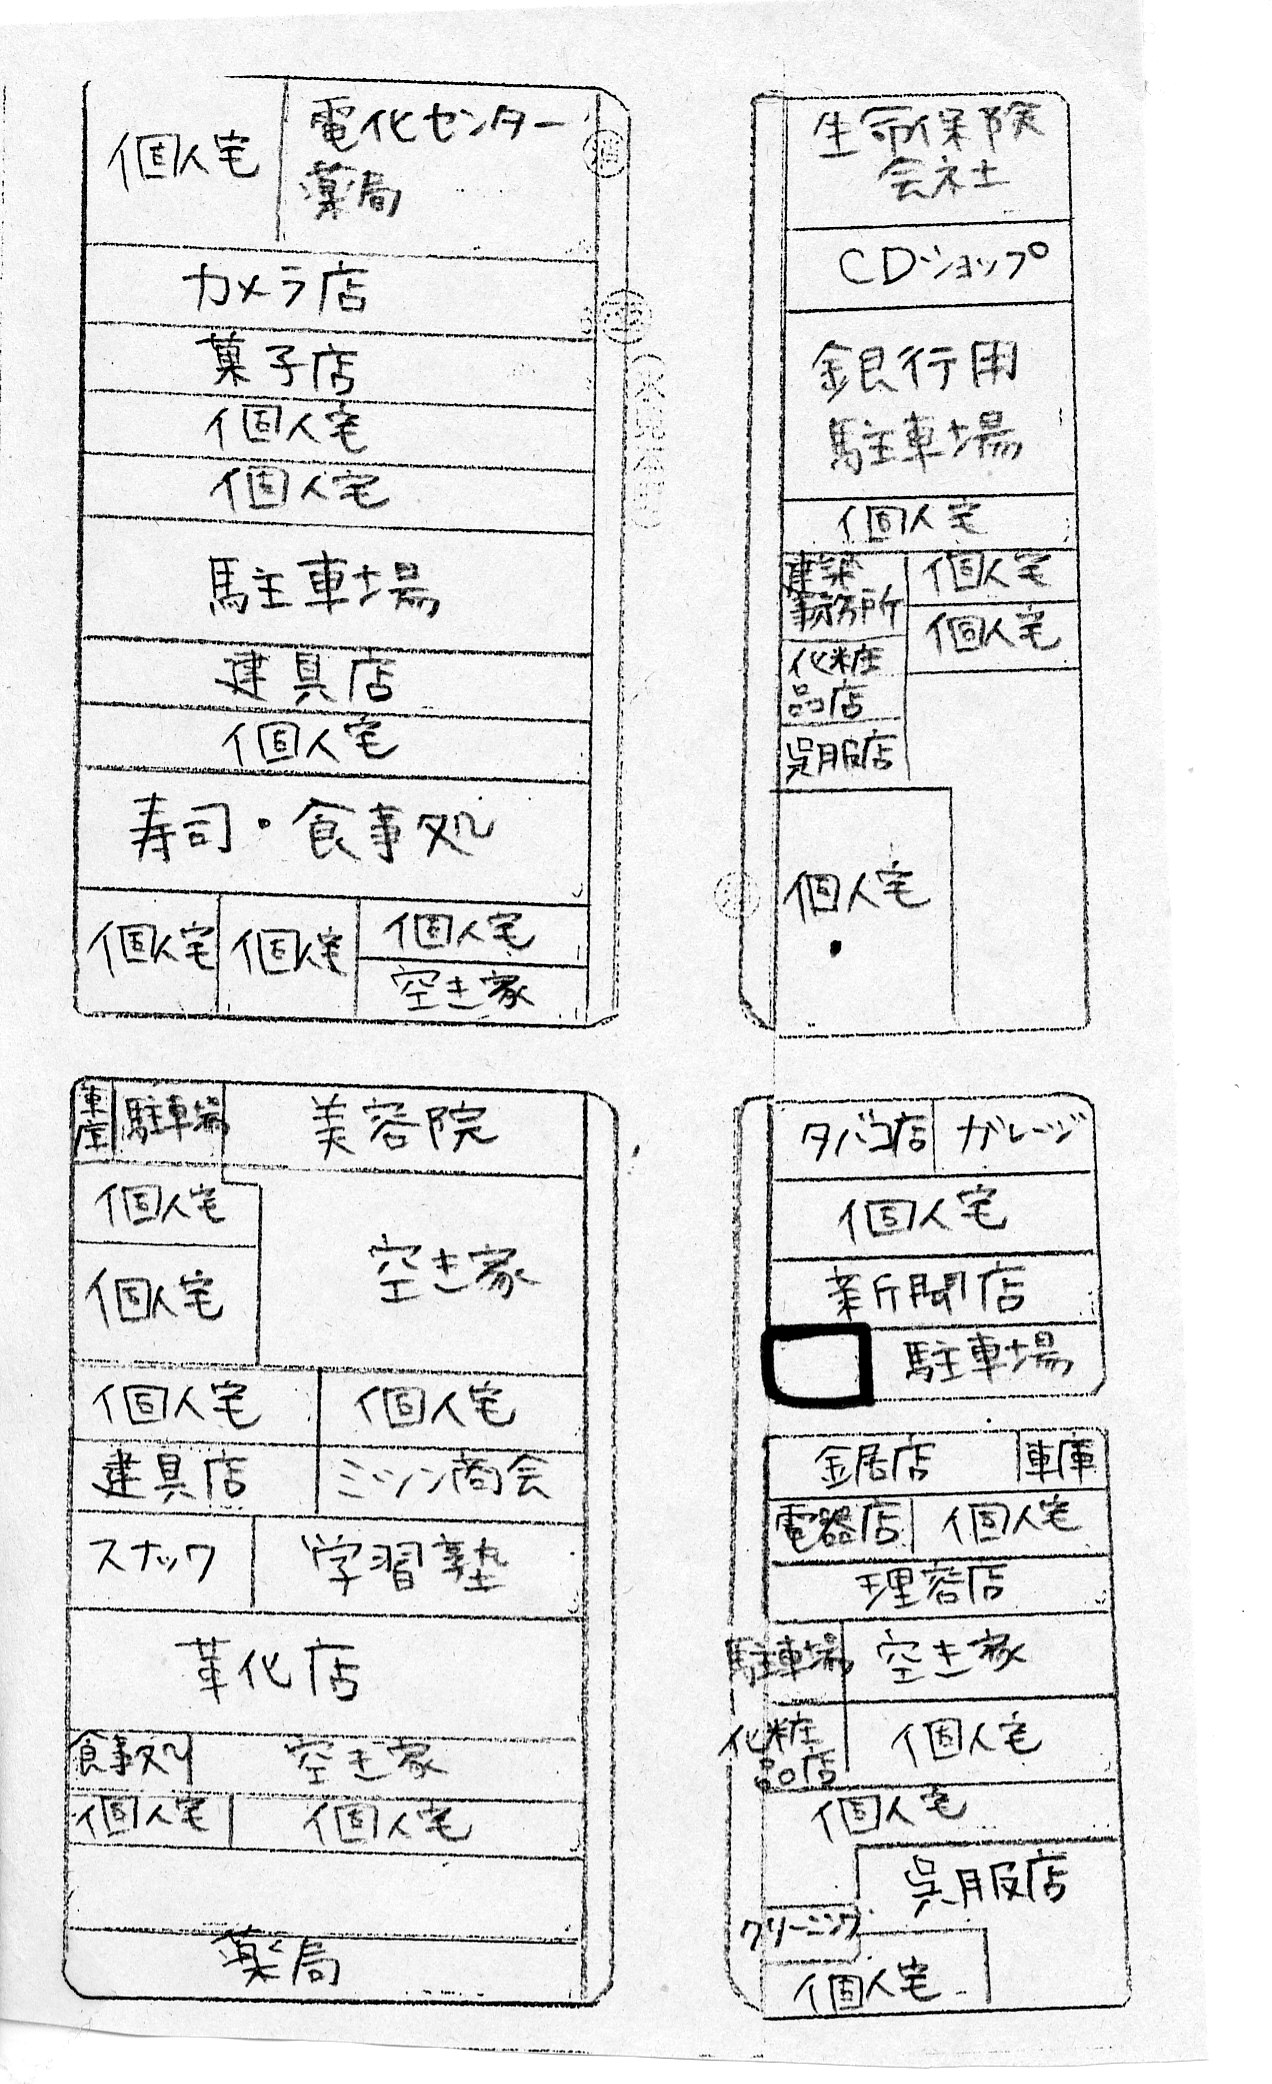 個人宅
電化センター
薬局
カメラ店
菓子店
個人宅
個人宅
駐車場
建具店
個人宅
寿司・食事処
個人宅
個人宅
個人宅
空き家
生命保険
会社
CDショップ
銀行用
駐車場
個人宅
建築
事務所
個人宅
個人宅
化粧
品店
呉服店
個人宅
車庫
駐車場
美容院
個人宅
個人宅
空き家
個人宅
個人宅
建具店
ミシン商会
スナック
学習塾
革化店
食事処
空き家
個人宅
個人宅
薬局
タバコ店
ガレージ
個人宅
新聞店
駐車場
金居店
車庫
電器店
個人宅
理容店
駐車場
空き家
化粧
品店
個人宅
個人宅
呉服店
クリーニング
個人宅